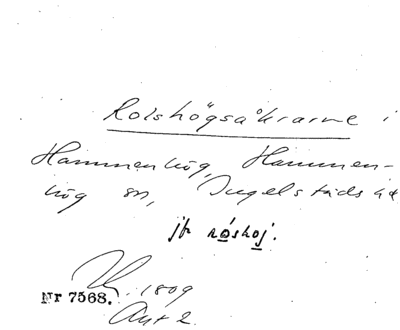 Rolshögsåkrarne i
Hammenhög, Hammen-
hög sn, Ingelstads hd
jfr róshoj.
1809
Nr 7568.
Akt 2